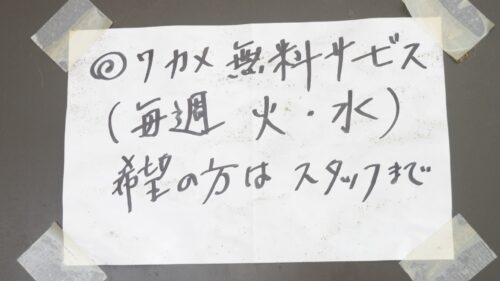 ◎ワカメ無料サービス
(毎週 火・水)
希望の方は スタッフまで